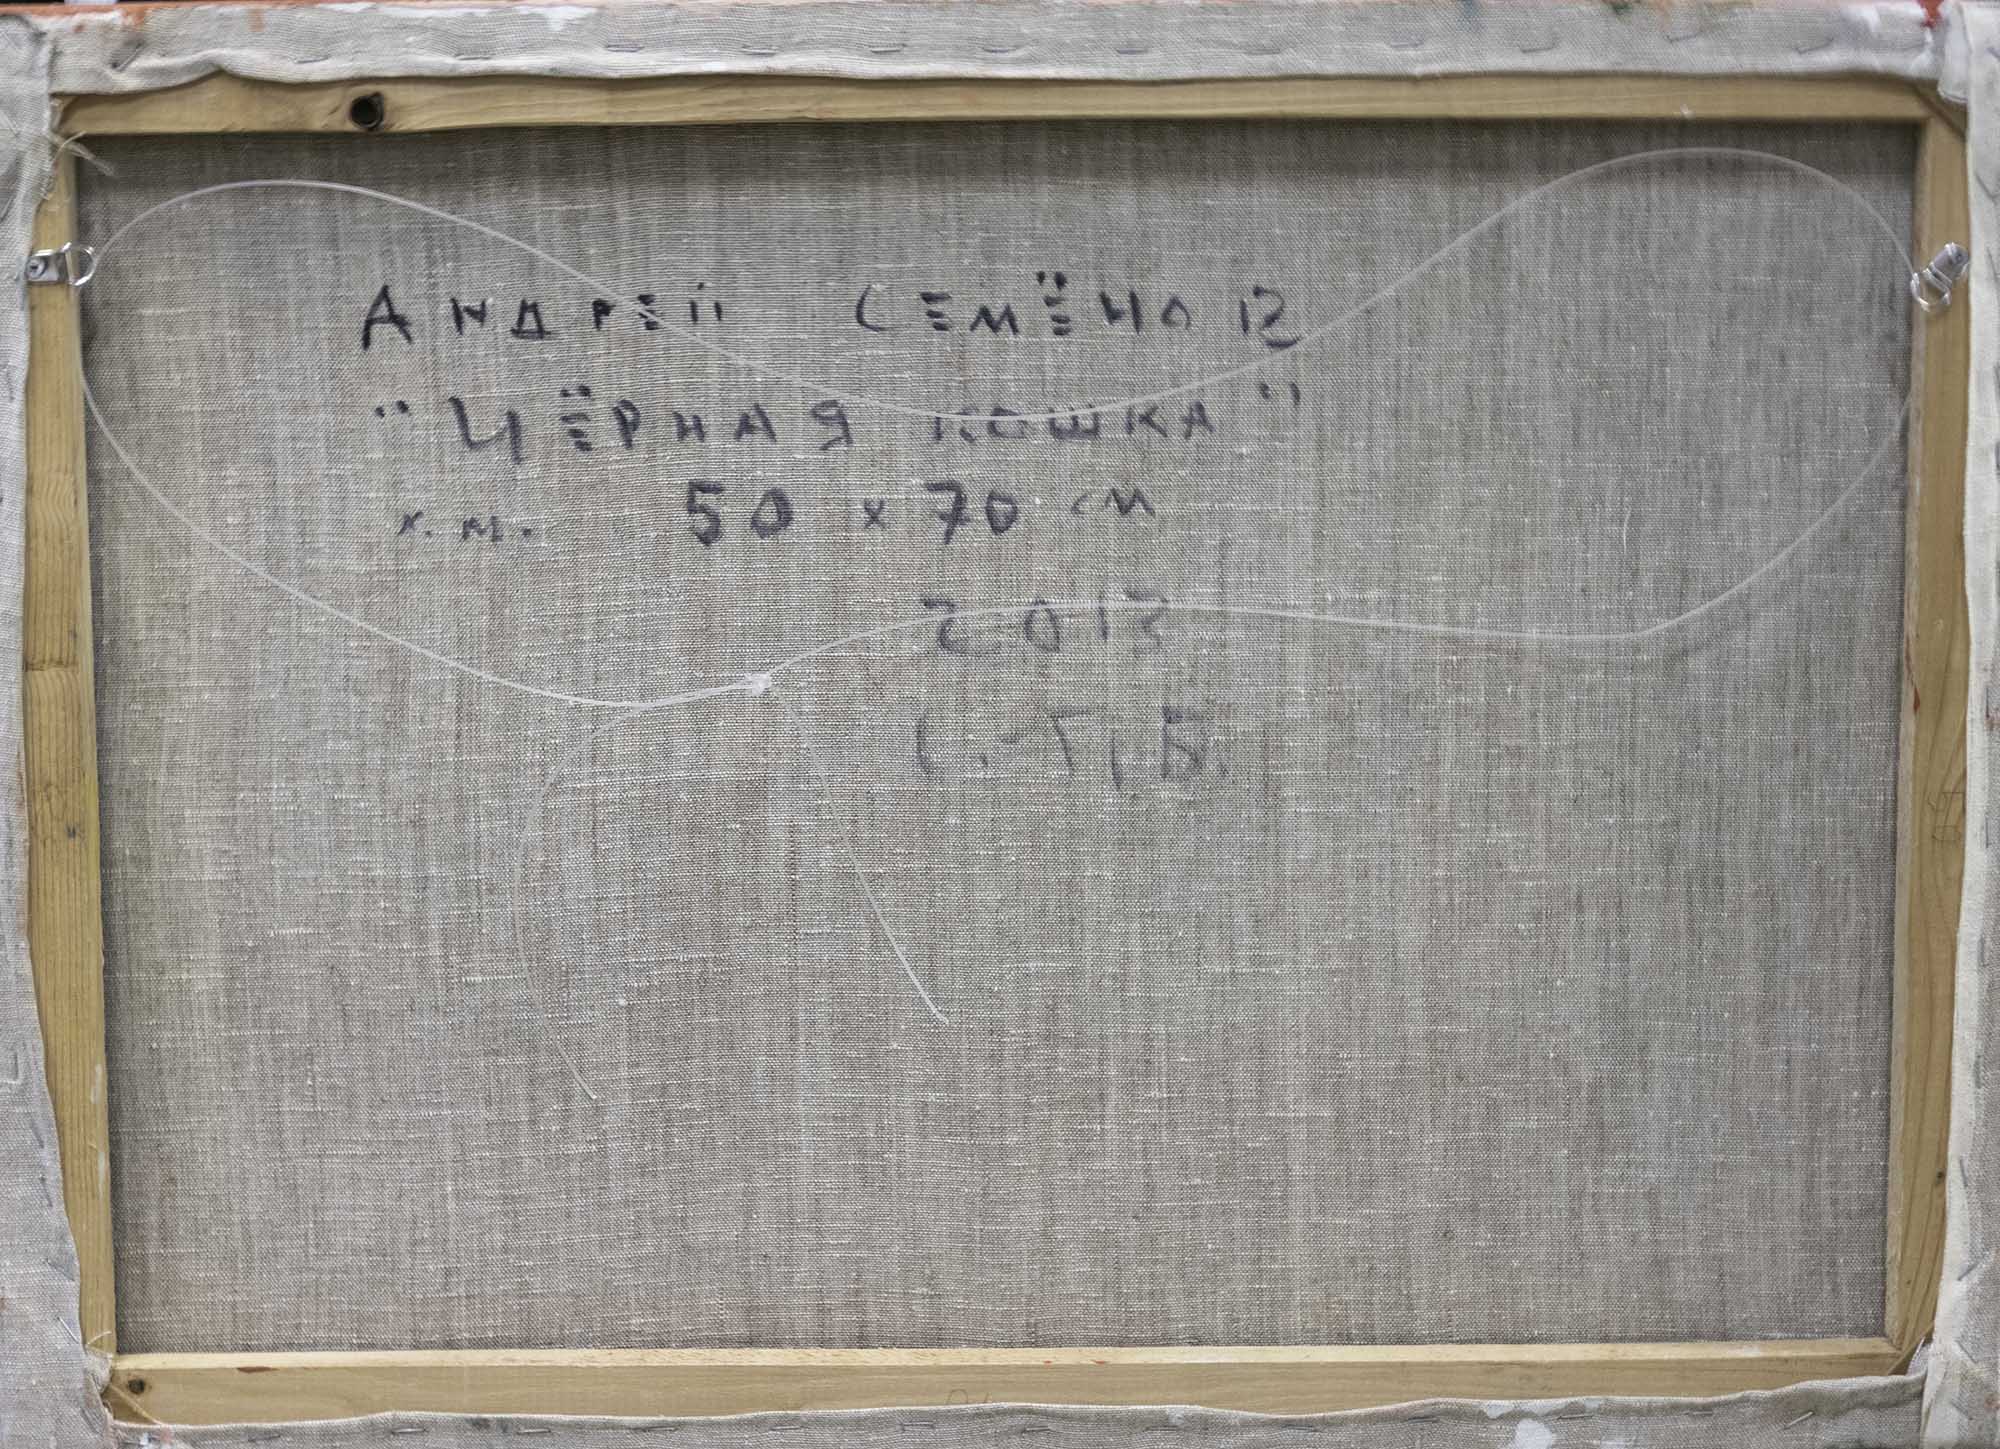 АНДРЕЙ СЕМЁНОВ
"ЧЁРНАЯ КОШКА"
х.м. 50 х 70 см
2013